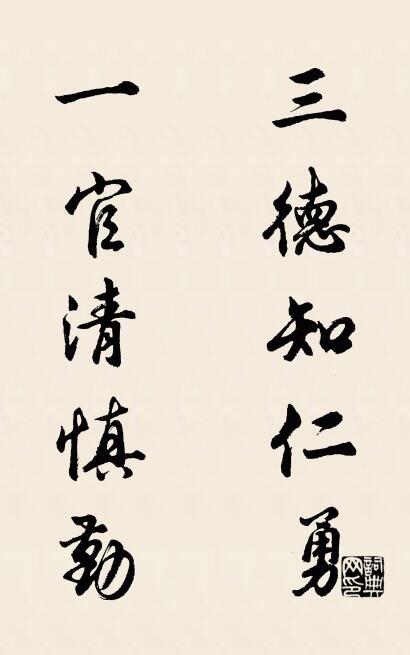 三德知仁勇
一官清慎勤
詞典网印